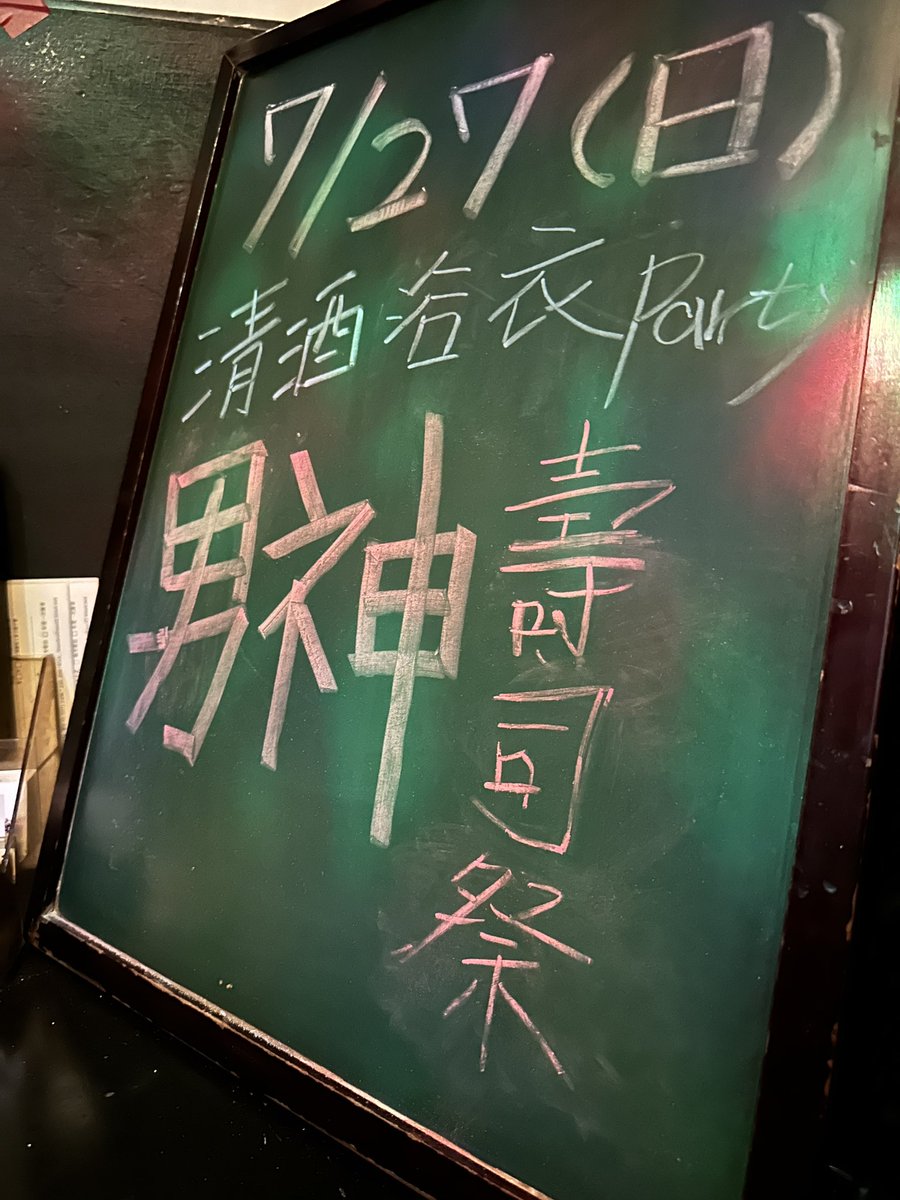 7/27(日)
清酒浴衣Party
男神
壽司祭